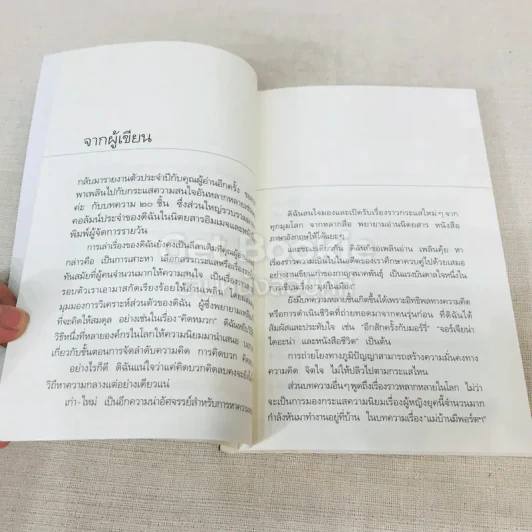 จากผู้เขียน
กลับมารายงานตัวประจำปีกับคุณผู้อ่านอีกครั้ง
พาเพลินไปกับกระแสความสนใจอันหลากหลาย
ค่ะ กับบทความ ๒๐ ชิ้น ซึ่งส่วนใหญ่รวบรวม
คอลัมน์ประจำของดิฉันในนิตยสารอิมเมจและหนังสือ
พิมพ์ผู้จัดการรายวัน
การเล่าเรื่องของดิฉันยังคงเป็นถึง
กล่าวคือ เป็นการเสาะหา เลือกสรรกระแสหรือเรื่อง
ทันสมัยที่ผู้คนจำนวนมากให้ความสนใจ เป็นเรื่อง
รอบตัวเราเอามาสกัดเรียงร้อยให้อ่านเพลิน โดย
มุมมองการวิเคราะห์ส่วนตัวของดิฉัน ผู้ซึ่งพยายาม
ที่จะคิดให้สมดุล อย่างเช่นในเรื่อง "คิดหมวก" ดิฉัน
วิธีหนึ่งที่หลายองค์กรในโลกให้ความนิยมมานำเสนอ
เกี่ยวกับขั้นตอนการจัดลำดับความคิด การคิดบวก
อย่างไรก็ดี ดิฉันแน่ใจว่าแค่คิดบวกคิดลบคง
วิถีหาความกลางแต่อย่างเดียวแน่
เก่า-ใหม่ เป็นอีกความน่าอัศจรรย์สำหรับการหาความ
ดิฉันสนใจมองและเปิดรับเรื่องราวกระแสใหม่ๆ จาก
ทุกมุมโลก จากหลากสื่อ พยายามอ่านนิตยสาร หนังสือ
ภาษาอังกฤษให้ได้เยอะๆ
และขณะเดียวกัน ดิฉันก็ชอบเพลินอ่าน เพลินคุ้ย หา
เรื่องราวความเป็นไปในอดีตของเราศึกษาควบคู่ไปด้วยเสมอ
อย่างงานเขียนเก่าของกาญจนาคพันธุ์ เป็นแรงบันดาลใจหนึ่งใน
การมองย้อนไปในเมืองไทย
ยังมีบทความหลายชิ้นเกิดขึ้นได้เพราะอิทธิพลทางความคิด
หรือการดำเนินชีวิตที่ถ่ายทอดมาจากคนรุ่นก่อน ที่ดิฉันได้
สัมผัสและประทับใจ เช่น "อีกสักครั้งกับมอร์รี่" "จอร์เจียน่า
ไดอะน่า และหนังสือชีวิต" เป็นต้น
การถ่ายโยงทางภูมิปัญญาสามารถสร้างความมั่นคงทาง
ความคิด จิตใจ ไม่ให้ปลิวไปตามกระแสไหน
ส่วนบทความอื่นๆ พูดถึงเรื่องราวหลากหลายในโลก ไม่ว่า
จะเป็นการมองกระแสความนิยมเรื่องผู้หญิงยุคนี้จำนวนมาก
กำลังหันมาทำงานอยู่ที่บ้าน ในบทความเรื่อง "แม่บ้านมีพอร์ตฯ"